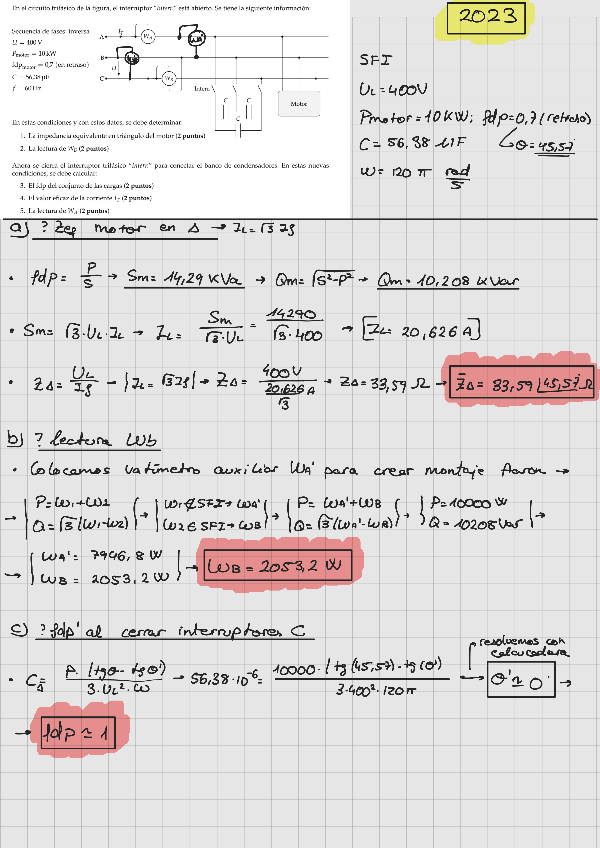 En el circuito trifásico de la figura, el interruptor "Interr." está abierto. Se tiene la siguiente información:
Secuencia de fases: inversa
U = 400 V
Pmotor = 10 kW
fdpmotor = 0,7 (en retraso)
C = 56,38 µF
f = 60 Hz
A
B
C
U
IT
WA
WB
Interr.
C
C
C
Motor
En estas condiciones y con estos datos, se debe determinar:
1. La impedancia equivalente en triángulo del motor (2 puntos)
2. La lectura de WB (2 puntos)
Ahora se cierra el interruptor trifásico "Interr." para conectar el banco de condensadores. En estas nuevas
condiciones, se debe calcular:
3. El fdp del conjunto de las cargas (2 puntos)
4. El valor eficaz de la corriente IT (2 puntos)
5. La lectura de WA (2 puntos)
2023
SFI
UL = 400V
Pmotor = 10 KW; fdp = 0,7 (retraso)
C = 56,38 µF θ = 45,57
W = 120 π rad/s
a) ? Zeq motor en Δ → IL = √3 If
• fdp = P/S → Sm = 14,29 KVa → Qm = √S²-P² → Qm = 10,208 KVar
• Sm = √3 · UL · IL → IL = Sm/√3·UL = 14290/√3·400 → [IL = 20,626 A]
• ZΔ = UL/If → |IL = √3 If| → ZΔ = 400V/(20,626 A/√3) → ZΔ = 33,59 Ω → Z̄Δ = 33,59 |45,57 Ω
b) ? lectura Wb
• Colocamos vatímetro auxiliar WA' para crear montaje Aaron →
→ | P = W1 + W2 | → | W1 ∉ SFI → WA' | → | P = WA' + WB | → | P = 10000 W | →
| Q = √3 (W1 - W2) | | W2 ∈ SFI → WB | | Q = √3 (WA' - WB) | | Q = 10208 Var |
→ | WA' = 7946,8 W | → WB = 2053,2 W
| WB = 2053,2 W |
c) ? fdp' al cerrar interruptores C
resolvemos con
calculadora
• CΔ = P · (tgθ - tgθ')/3 · UL² · W → 56,38·10⁻⁶ = 10000 · (tg(45,57) - tg(θ')/3·400²·120π → θ' ≃ 0° →
→ fdp ≃ 1